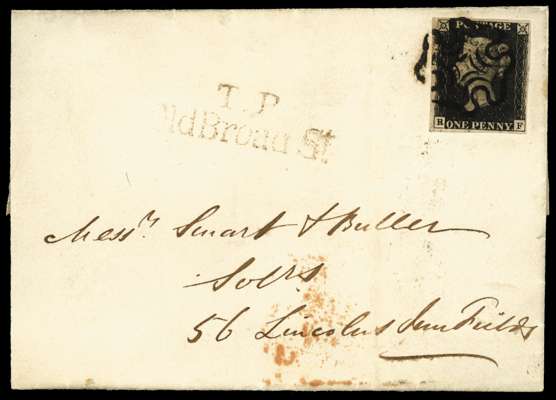 POSTAGE
R F
ONE PENNY
T.P
Old Broad St
Messrs Smart & Buller
Solrs
56 Lincolns Inn Fields